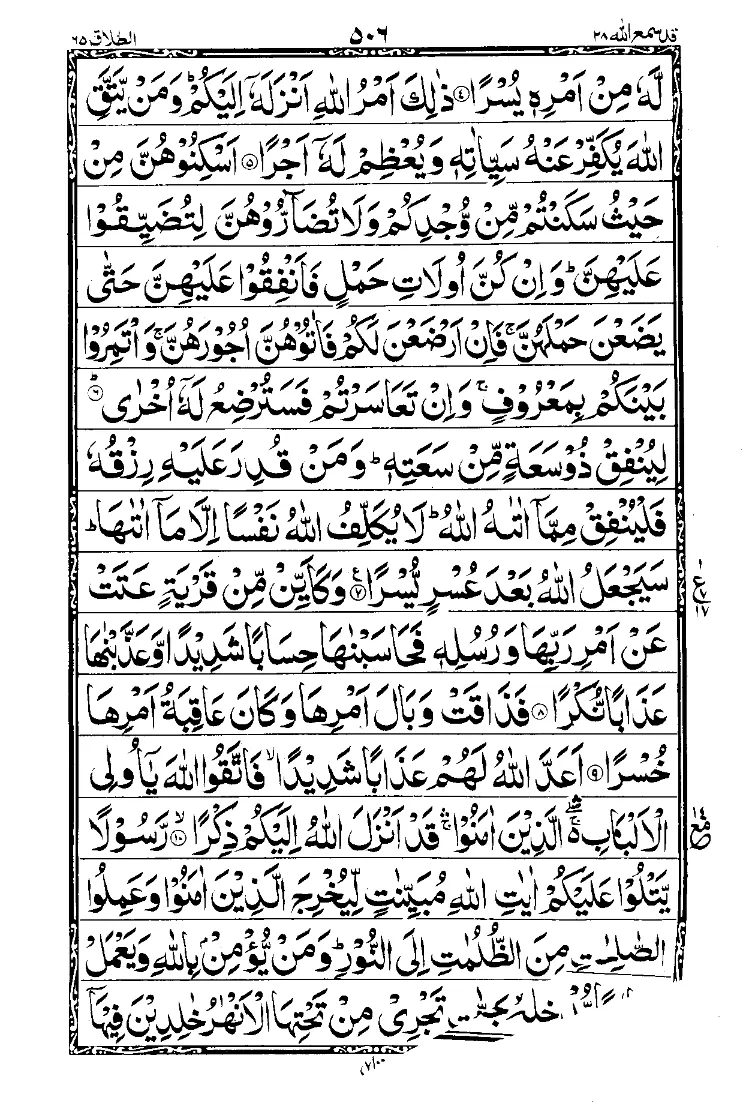 قد سمع الله ٢٨ ٥٠٦ الطلاق ٦٥
لَّهٗ مِنْ اَمْرِهٖ يُسْرًا ﴿۴﴾ ذٰلِكَ اَمْرُ اللّٰهِ اَنْزَلَهٗۤ اِلَيْكُمْ ؕ وَمَنْ يَّتَّقِ
اللّٰهَ يُكَفِّرْ عَنْهُ سَيِّاٰتِهٖ وَيُعْظِمْ لَهٗۤ اَجْرًا ﴿۵﴾ اَسْكِنُوْهُنَّ مِنْ
حَيْثُ سَكَنْتُمْ مِّنْ وُّجْدِكُمْ وَلَا تُضَآرُّوْهُنَّ لِتُضَيِّقُوْا
عَلَيْهِنَّ ؕ وَاِنْ كُنَّ اُولَاتِ حَمْلٍ فَاَنْفِقُوْا عَلَيْهِنَّ حَتّٰى
يَضَعْنَ حَمْلَهُنَّ ۚ فَاِنْ اَرْضَعْنَ لَكُمْ فَاٰتُوْهُنَّ اُجُوْرَهُنَّ ۚ وَاْتَمِرُوْا
بَيْنَكُمْ بِمَعْرُوْفٍ ۚ وَاِنْ تَعَاسَرْتُمْ فَسَتُرْضِعُ لَهٗۤ اُخْرٰى ؕ﴿۶﴾
لِيُنْفِقْ ذُوْ سَعَةٍ مِّنْ سَعَتِهٖ ؕ وَمَنْ قُدِرَ عَلَيْهِ رِزْقُهٗ
فَلْيُنْفِقْ مِمَّاۤ اٰتٰىهُ اللّٰهُ ؕ لَا يُكَلِّفُ اللّٰهُ نَفْسًا اِلَّا مَاۤ اٰتٰىهَا ؕ
سَيَجْعَلُ اللّٰهُ بَعْدَ عُسْرٍ يُّسْرًا ﴿۷﴾ع وَكَاَيِّنْ مِّنْ قَرْيَةٍ عَتَتْ
عَنْ اَمْرِ رَبِّهَا وَرُسُلِهٖ فَحَاسَبْنٰهَا حِسَابًا شَدِيْدًا وَّعَذَّبْنٰهَا
عَذَابًا نُّكْرًا ﴿۸﴾ فَذَاقَتْ وَبَالَ اَمْرِهَا وَكَانَ عَاقِبَةُ اَمْرِهَا
خُسْرًا ﴿۹﴾ اَعَدَّ اللّٰهُ لَهُمْ عَذَابًا شَدِيْدًا ۙ فَاتَّقُوا اللّٰهَ يٰۤاُولِى
الْاَلْبَابِ ۚۛ الَّذِيْنَ اٰمَنُوْا ۛ قَدْ اَنْزَلَ اللّٰهُ اِلَيْكُمْ ذِكْرًا ۙ﴿۱۰﴾ رَّسُوْلًا
يَّتْلُوْا عَلَيْكُمْ اٰيٰتِ اللّٰهِ مُبَيِّنٰتٍ لِّيُخْرِجَ الَّذِيْنَ اٰمَنُوْا وَعَمِلُوا
الصّٰلِحٰتِ مِنَ الظُّلُمٰتِ اِلَى النُّوْرِ ؕ وَمَنْ يُّؤْمِنْ بِاللّٰهِ وَيَعْمَلْ
جَنّٰتٍ تَجْرِىْ مِنْ تَحْتِهَا الْاَنْهٰرُ خٰلِدِيْنَ فِيْهَاۤ